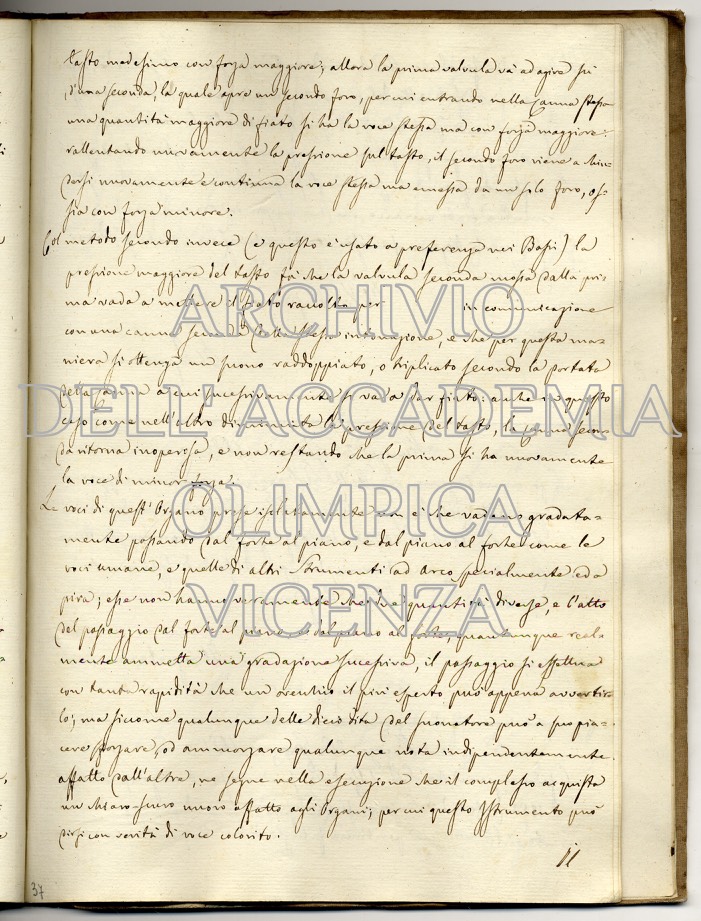 tasto medesimo con forza maggiore; allora la prima valvula và ad agire sù
d'una seconda, la quale apre un secondo foro, per cui entrando nella Canna stessa
una quantità maggiore di fiato si ha la voce stessa ma con forza maggiore:
rallentando nuovamente la pressione sul tasto, il secondo foro viene a chiu-
dersi nuovamente e continua la voce stessa ma emessa da un solo foro, os-
sia con forza minore.
Col metodo secondo invece (e questo è usato a preferenza nei Bassi) la
pressione maggiore del tasto fà che la valvula seconda mossa dalla pri-
ma vada a mettere il fiato raccolto per in comunicazione
con una canna seconda della stessa intonazione, e che per questa ma-
niera si ottenga un suono raddoppiato, o triplicato secondo la portata
della canna a cui successivamente si vada dar fiato: anche in questo
caso come nell'altro diminuita la pressione del tasto, la canna secon-
da ritorna inoperosa, e non restando che la prima si ha nuovamente
la voce di minor forza.
Le voci di quest'Organo prese isolatamente non è che vadano gradata-
mente passando dal forte al piano, e dal piano al forte come le
voci umane, e quelle di altri Strumenti ad arco specialmente ed a
; esse non hanno veramente che due quantità diverse, e l'atto
del passaggio dal forte al piano o dal piano al forte, quantunque reala
mente ammetta una gradazione successiva, il passaggio si effettua
con tanta rapidità che un orecchio il più esperto può appena avvertir-
lo; ma siccome qualunque delle dieci dita del suonatore può a suo pia-
cere sforzare, od ammorzare qualunque nota indipendentemente
affatto dall'altre, ne segue nella esecuzione che il complesso acquista
un chiaro-scuro nuovo affatto agli Organi; per cui questo Istrumento può
dirsi con verità di voce colorito.
il
37
ARCHIVIO
DELL'ACCADEMIA
OLIMPICA
VICENZA